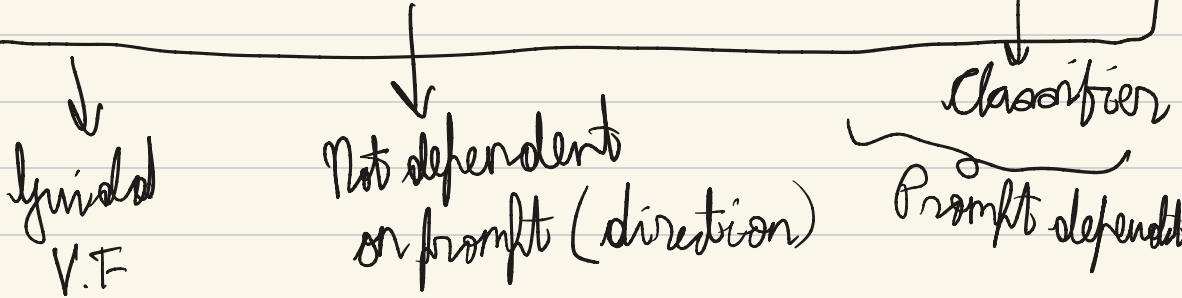 Guided
V.F
Not dependent
on prompt (direction)
Classifier
Prompt dependt